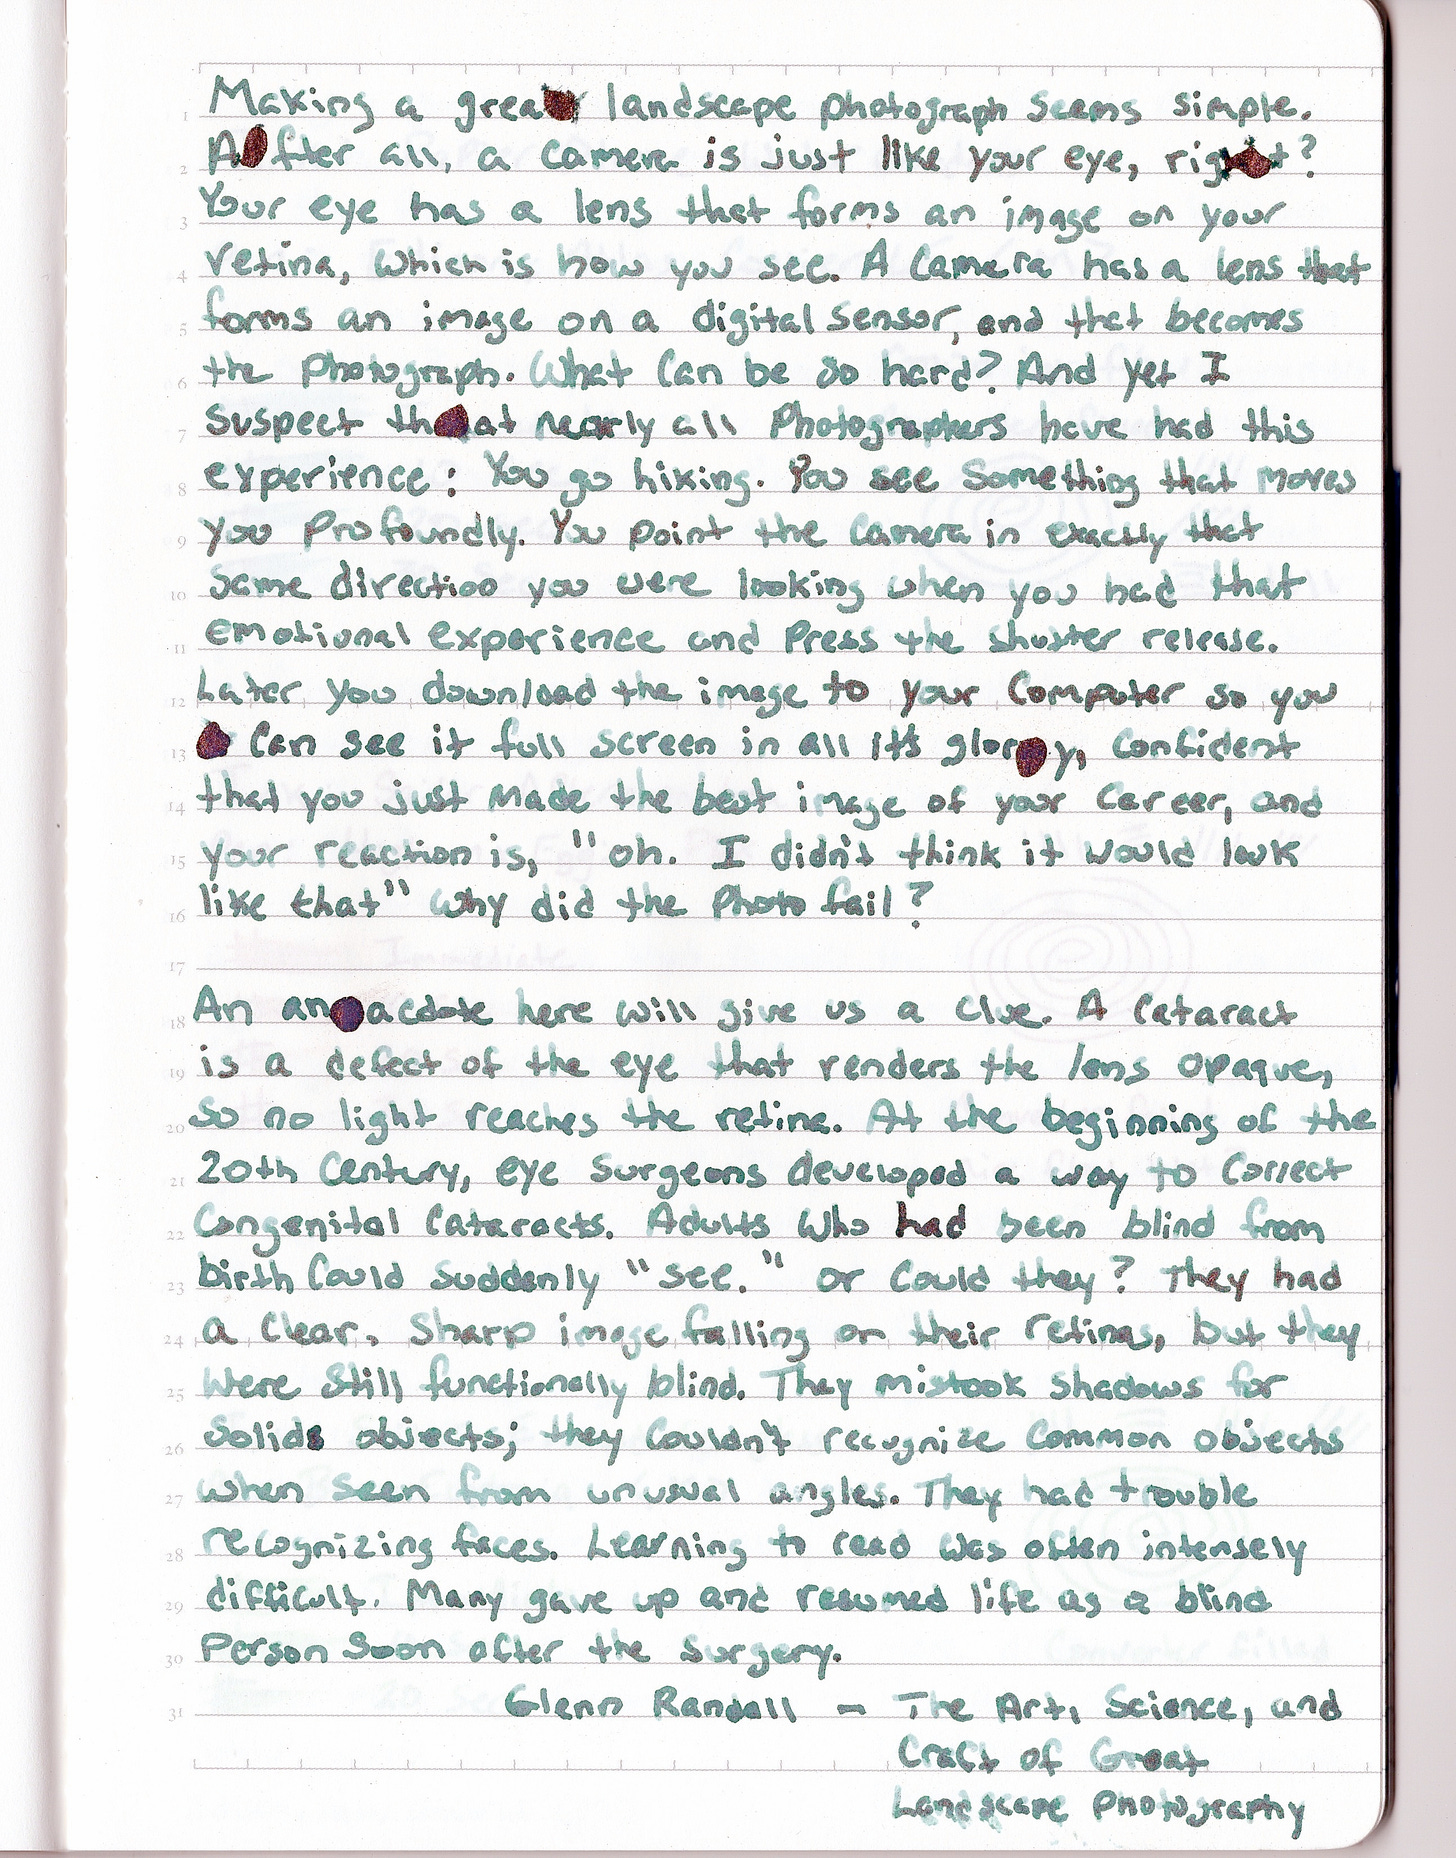 Making a great landscape photograph seems simple.
After all, a camera is just like your eye, right?
Your eye has a lens that forms an image on your
retina, which is how you see. A camera has a lens that
forms an image on a digital sensor, and that becomes
the photograph. What can be so hard? And yet I
suspect that nearly all photographers have had this
experience: You go hiking. You see something that moves
you profoundly. You point the camera in exactly that
same direction you were looking when you had that
emotional experience and press the shutter release.
Later you download the image to your computer so you
can see it full screen in all it's glory, confident
that you just made the best image of your career, and
your reaction is, "oh. I didn't think it would look
like that" why did the photo fail?
An anacdote here will give us a clue. A cataract
is a defect of the eye that renders the lens opaque,
so no light reaches the retina. At the beginning of the
20th Century, eye surgeons developed a way to correct
congenital cataracts. Adults who had been blind from
birth could suddenly "see." or could they? They had
a clear, sharp image falling on their retinas, but they
were still functionally blind. They mistook shadows for
solid objects; they couldn't recognize common objects
when seen from unusual angles. They had trouble
recognizing faces. Learning to read was often intensely
difficult. Many gave up and resumed life as a blind
person soon after the surgery.
Glenn Randall – The Art, Science, and
Craft of Great
Landscape Photography